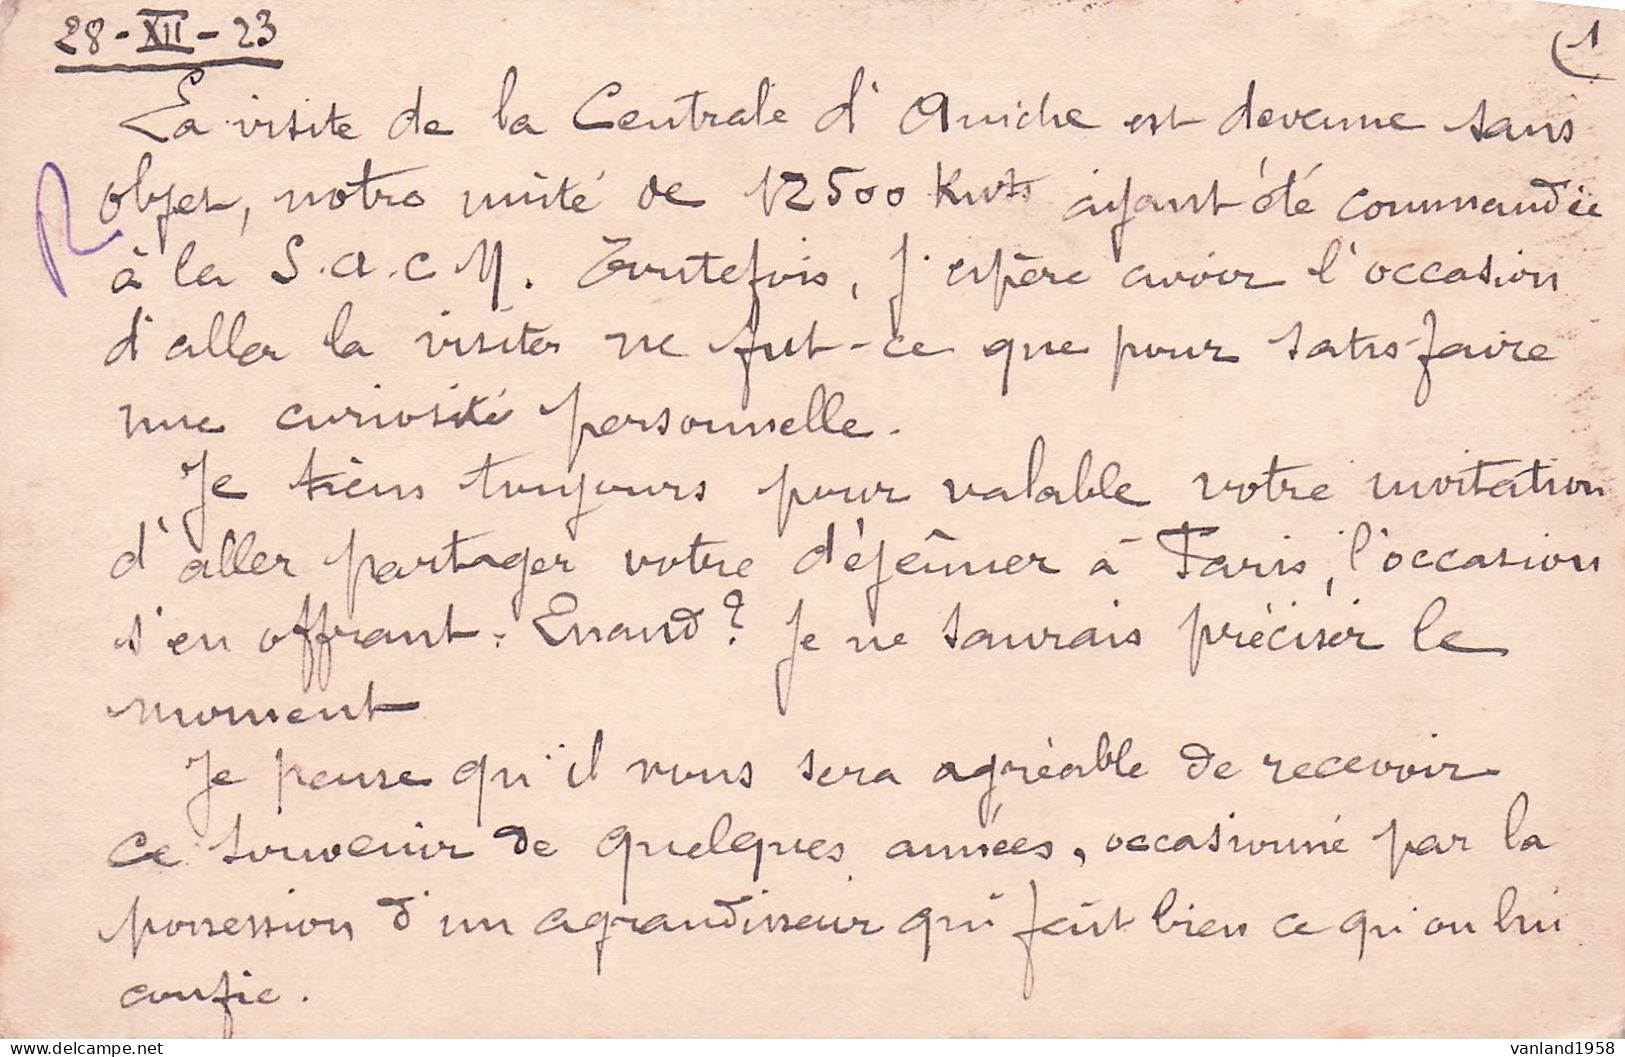 28-XII-23
(1
La visite de la Centrale d'Aniche est devenue sans
objet, notre unité de 12500 Kwts ayant été commandée
à la S.A.C.M. Toutefois, j'espère avoir l'occasion
d'aller la visiter ne fut-ce que pour satisfaire
une curiosité personnelle.
Je tiens toujours pour valable votre invitation
d'aller partager votre déjeûner à Paris, l'occasion
s'en offrant. Quand? Je ne saurais préciser le
moment
Je pense qu'il vous sera agréable de recevoir
ce souvenir de quelques années, occasionné par la
possession d'un agrandisseur qui fait bien ce qu'on lui
confie.
vanland1958